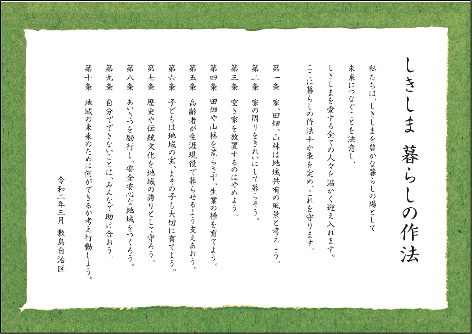 しきしま 暮らしの作法
私たちは、しきしまを豊かな暮らしの場として
未来につなぐことを決意し、
しきしまを愛する全ての人々を温かく迎え入れます。
ここに暮らしの作法十か条を定め、これを守ります。
第一条 家、田畑、山林は地域共有の風景と考えよう。
第二条 家の周りをきれいにして暮らそう。
第三条 空き家を放置するのはやめよう。
第四条 田畑や山林を荒らさず、生業の構を育てよう。
第五条 高齢者が生涯現役で暮らせるよう支えあおう。
第六条 子どもは地域の宝、よその子も大切に育てよう。
第七条 歴史や伝統文化を地域の誇りとして守ろう。
第八条 あいさつを励行し、安全安心な地域をつくろう。
第九条 自分でできないことは、みんなで助け合おう。
第十条 地域の未来のために何ができるか考え行動しよう。
令和二年三月 敷島自治区